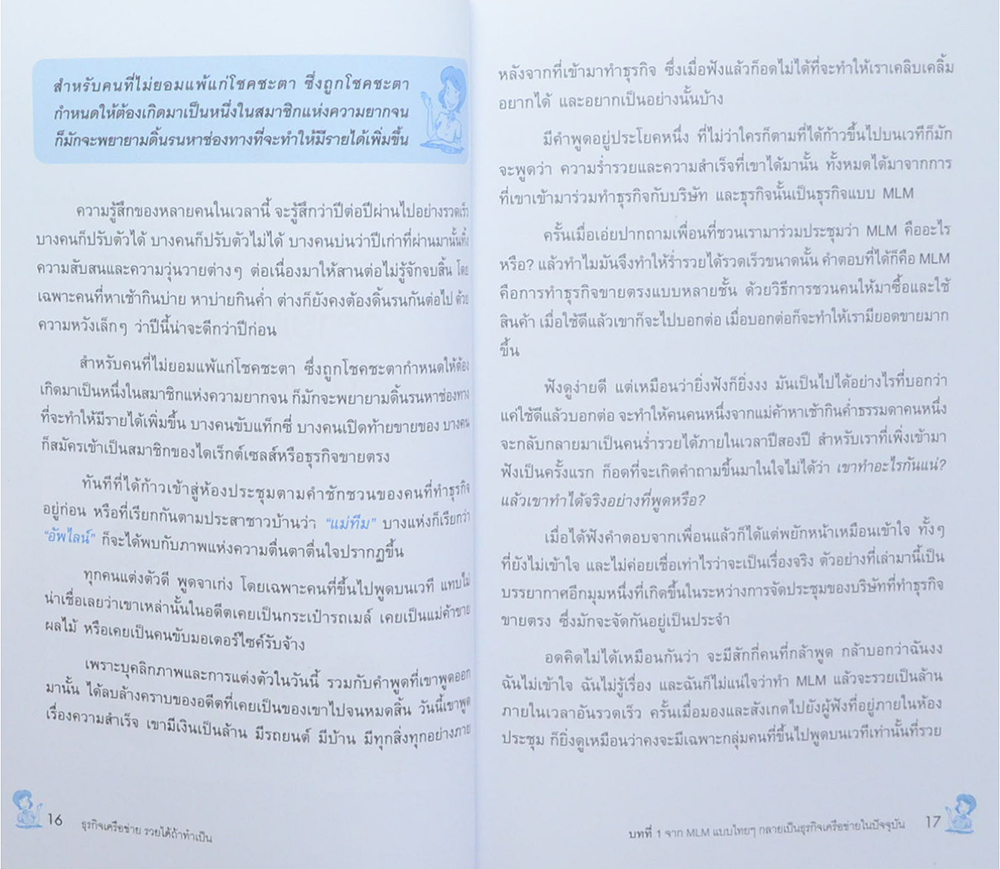 สำหรับคนที่ไม่ยอมแพ้แก่โชคชะตา ซึ่งถูกโชคชะตา
กำหนดให้ต้องเกิดมาเป็นหนึ่งในสมาชิกแห่งความยากจน
ก็มักจะพยายามดิ้นรนหาช่องทางที่จะทำให้มีรายได้เพิ่มขึ้น
ความรู้สึกของหลายคนในเวลานี้ จะรู้สึกว่าปีต่อปีผ่านไปอย่างรวดเร็ว
บางคนก็ปรับตัวได้ บางคนก็ปรับตัวไม่ได้ บางคนบ่นว่าปีเก่าที่ผ่านมานั้นทิ้ง
ความสับสนและความวุ่นวายต่างๆ ต่อเนื่องมาให้สานต่อไม่รู้จักจบสิ้น โดย
เฉพาะคนที่หาเช้ากินบ่าย หาบ่ายกินค่ำ ต่างก็ยังคงต้องดิ้นรนกันต่อไป ด้วย
ความหวังเล็กๆ ว่าปีนี้น่าจะดีกว่าปีก่อน
สำหรับคนที่ไม่ยอมแพ้แก่โชคชะตา ซึ่งถูกโชคชะตากำหนดให้ต้อง
เกิดมาเป็นหนึ่งในสมาชิกแห่งความยากจน ก็มักจะพยายามดิ้นรนหาช่องทาง
ที่จะทำให้มีรายได้เพิ่มขึ้น บางคนขับแท็กซี่ บางคนเปิดท้ายขายของ บางคน
ก็สมัครเข้าเป็นสมาชิกของไดเร็กต์เซลส์หรือธุรกิจขายตรง
ทันทีที่ได้ก้าวเข้าสู่ห้องประชุมตามคำชักชวนของคนที่ทำธุรกิจ
อยู่ก่อน หรือที่เรียกกันตามประสาชาวบ้านว่า "แม่ทีม" บางแห่งก็เรียกว่า
"อัพไลน์" ก็จะได้พบกับภาพแห่งความตื่นตาตื่นใจปรากฏขึ้น
ทุกคนแต่งตัวดี พูดจาเก่ง โดยเฉพาะคนที่ขึ้นไปพูดบนเวที แทบไม่
น่าเชื่อเลยว่าเขาเหล่านั้นในอดีตเคยเป็นกระเป๋ารถเมล์ เคยเป็นแม่ค้าขาย
ผลไม้ หรือเคยเป็นคนขับมอเตอร์ไซค์รับจ้าง
เพราะบุคลิกภาพและการแต่งตัวในวันนี้ รวมกับคำพูดที่เขาพูดออก
มานั้น ได้ลบล้างคราบของอดีตที่เคยเป็นของเขาไปจนหมดสิ้น วันนี้เขาพูด
เรื่องความสำเร็จ เขามีเงินเป็นล้าน มีรถยนต์ มีบ้าน มีทุกสิ่งทุกอย่างภาย
16 ธุรกิจเครือข่าย รวยได้ถ้าทำเป็น
หลังจากที่เข้ามาทำธุรกิจ ซึ่งเมื่อฟังแล้วก็อดไม่ได้ที่จะทำให้เราเคลิบเคลิ้ม
อยากได้ และอยากเป็นอย่างนั้นบ้าง
มีคำพูดอยู่ประโยคหนึ่ง ที่ไม่ว่าใครก็ตามที่ได้ก้าวขึ้นไปบนเวทีก็มัก
จะพูดว่า ความร่ำรวยและความสำเร็จที่เขาได้มานั้น ทั้งหมดได้มาจากการ
ที่เขาเข้ามาร่วมทำธุรกิจกับบริษัท และธุรกิจนั้นเป็นธุรกิจแบบ MLM
ครั้นเมื่อเอ่ยปากถามเพื่อนที่ชวนเรามาร่วมประชุมว่า MLM คืออะไร
หรือ? แล้วทำไมมันจึงทำให้ร่ำรวยได้รวดเร็วขนาดนั้น คำตอบที่ได้ก็คือ MLM
คือการทำธุรกิจขายตรงแบบหลายชั้น ด้วยวิธีการชวนคนให้มาซื้อและใช้
สินค้า เมื่อใช้ดีแล้วเขาก็จะไปบอกต่อ เมื่อบอกต่อก็จะทำให้เรามียอดขายมาก
ขึ้น
ฟังดูง่ายดี แต่เหมือนว่ายิ่งฟังก็ยิ่งงง มันเป็นไปได้อย่างไรที่บอกว่า
แค่ใช้ดีแล้วบอกต่อ จะทำให้คนคนหนึ่งจากแม่ค้าหาเช้ากินค่ำธรรมดาคนหนึ่ง
จะกลับกลายมาเป็นคนร่ำรวยได้ภายในเวลาปีสองปี สำหรับเราที่เพิ่งเข้ามา
ฟังเป็นครั้งแรก ก็อดที่จะเกิดคำถามขึ้นมาในใจไม่ได้ว่า เขาทำอะไรกันแน่?
แล้วเขาทำได้จริงอย่างที่พูดหรือ?
เมื่อได้ฟังคำตอบจากเพื่อนแล้วก็ได้แต่พยักหน้าเหมือนเข้าใจ ทั้งๆ
ที่ยังไม่เข้าใจ และไม่ค่อยเชื่อเท่าไรว่าจะเป็นเรื่องจริง ตัวอย่างที่เล่ามานี้เป็น
บรรยากาศอีกมุมหนึ่งที่เกิดขึ้นในระหว่างการจัดประชุมของบริษัทที่ทำธุรกิจ
ขายตรง ซึ่งมักจะจัดกันอยู่เป็นประจำ
อดคิดไม่ได้เหมือนกันว่า จะมีสักกี่คนที่กล้าพูด กล้าบอกว่าฉันงง
ฉันไม่เข้าใจ ฉันไม่รู้เรื่อง และฉันก็ไม่แน่ใจว่าทำ MLM แล้วจะรวยเป็นล้าน
ภายในเวลาอันรวดเร็ว ครั้นเมื่อมองและสังเกตไปยังผู้ฟังที่อยู่ภายในห้อง
ประชุม ก็ยิ่งดูเหมือนว่าคงจะมีเฉพาะกลุ่มคนที่ขึ้นไปพูดบนเวทีเท่านั้นที่รวย
บทที่ 1 จาก MLM แบบไทยๆ กลายเป็นธุรกิจเครือข่ายในปัจจุบัน 17